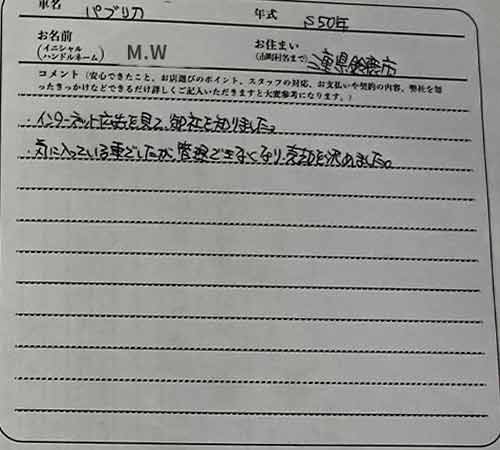 車名 パブリカ 年式 S50年
お名前 (イニシャル ハンドルネーム) M.W お住まい (市町村名まで) 三重県鈴鹿市
コメント(安心できたこと、お店選びのポイント、スタッフの対応、お支払いや契約の内容、弊社を知
ったきっかけなどできるだけ詳しくご記入いただきますと大変参考になります。)
・インターネット広告を見て、御社を知りました。
・気に入っている車でしたが、管理できなくなり、売却を決めました。